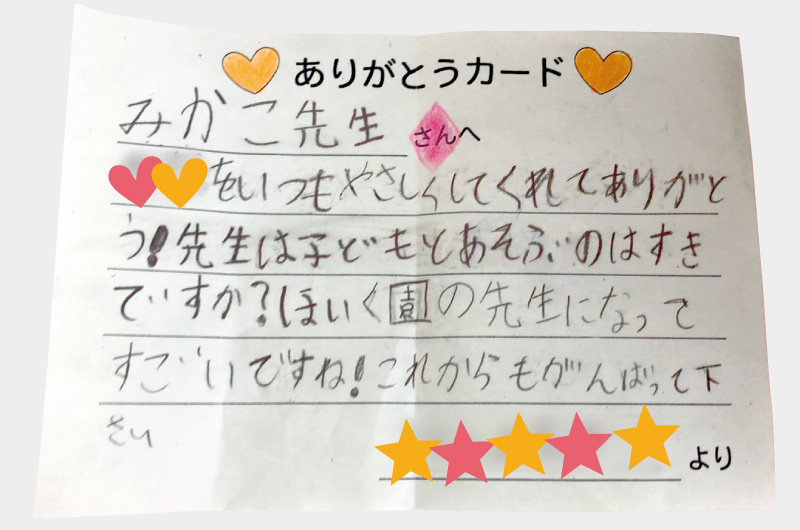 ありがとうカード
みかこ先生 さんへ
をいつもやさしくしてくれてありがと
う!先生は子どもとあそぶのはすき
ですか?ほいく園の先生になって
すごいですね!これからもがんばって下
さい
より